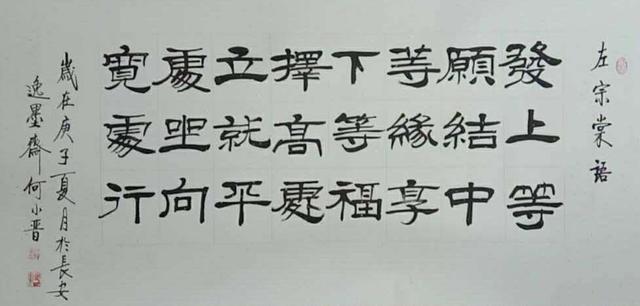 左宗棠語
發上等
願結中
等緣享
下等福
擇高處
立就平
處坐向
寬處行
歲在庚子夏月於長安
逸墨齋何小晋